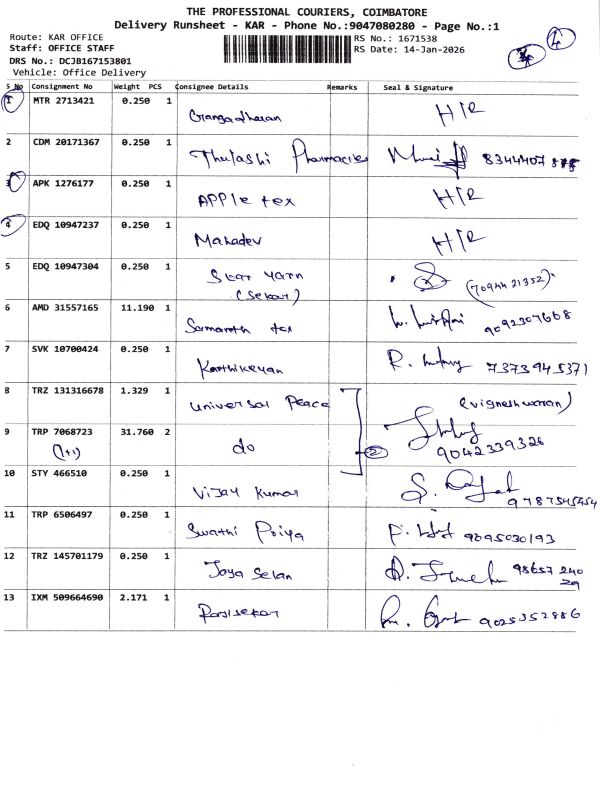 THE PROFESSIONAL COURIERS, COIMBATORE
Delivery Runsheet - KAR - Phone No.:9047080280 - Page No.:1
Route: KAR OFFICE
RS No.: 1671538
Staff: OFFICE STAFF
RS Date: 14-Jan-2026
4
DRS No.: DCJB167153801
Vehicle: Office Delivery
S_No Consignment No Weight PCS Consignee Details Remarks Seal & Signature
1 MTR 2713421 0.250 1 Gangadharan H/R
2 CDM 20171367 0.250 1 Thulashi Pharmacies 8344407
3 APK 1276177 0.250 1 APPle tex H/R
4 EDQ 10947237 0.250 1 Mahadev H/R
5 EDQ 10947304 0.250 1 Star yarn
(Sekar)
6 AMD 31557165 11.190 1 Samarath tex 9092307668
7 SVK 10700424 0.250 1 Karthikeyan 7373945371
8 TRZ 131316678 1.329 1 universal Peace (vigneshwaran)
9 TRP 7068723 31.760 2 do 2 9042339326
(1+1)
10 STY 466510 0.250 1 Vijay Kumar 9787545454
11 TRP 6506497 0.250 1 Swathi Priya 9095030193
12 TRZ 145701179 0.250 1 Jaya Selan 98657 240
29
13 IXM 509664690 2.171 1 Rajisekar 9025352886